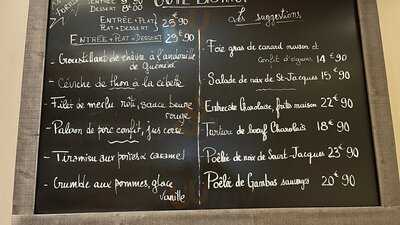 Dessert 8€00
Entrée + Plat
Plat + Dessert } 23€90
Entrée + Plat + Dessert 29€90
- Croustillant de chèvre à l'andouille
de Guéméné
- Céviche de thon à la cébette
- Filet de merlu rôti, sauce beurre
rouge
- Paleron de porc confit, jus corsé
- Tiramisu aux poires & caramel
- Crumble aux pommes, glace
Vanille
Les suggestions
Foie gras de canard maison et
confit d'oignons 14€90
Salade de noix de St-Jacques 15€90
Entrecôte Charolaise, frites maison 22€90
Tartare de bœuf Charolais 18€90
Poêlée de noix de Saint-Jacques 23€90
Poêlée de Gambas sauvages 20€90